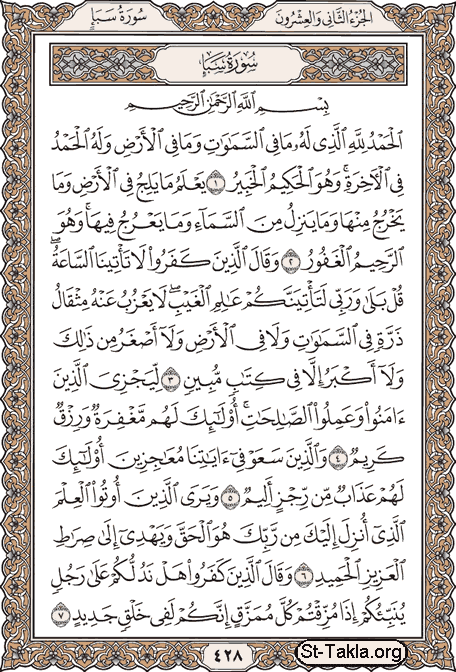 الجزء الثاني والعشرون
سورة سبإ
سورة سبإ
بسم الله الرحمن الرحيم
ٱلْحَمْدُ لِلَّهِ ٱلَّذِى لَهُۥ مَا فِى ٱلسَّمَٰوَٰتِ وَمَا فِى ٱلْأَرْضِ وَلَهُ ٱلْحَمْدُ
فِى ٱلْـَٔاخِرَةِ ۚ وَهُوَ ٱلْحَكِيمُ ٱلْخَبِيرُ ١ يَعْلَمُ مَا يَلِجُ فِى ٱلْأَرْضِ وَمَا
يَخْرُجُ مِنْهَا وَمَا يَنزِلُ مِنَ ٱلسَّمَآءِ وَمَا يَعْرُجُ فِيهَا ۚ وَهُوَ
ٱلرَّحِيمُ ٱلْغَفُورُ ٢ وَقَالَ ٱلَّذِينَ كَفَرُوا۟ لَا تَأْتِينَا ٱلسَّاعَةُ ۖ
قُلْ بَلَىٰ وَرَبِّى لَتَأْتِيَنَّكُمْ عَٰلِمِ ٱلْغَيْبِ ۖ لَا يَعْزُبُ عَنْهُ مِثْقَالُ
ذَرَّةٍ فِى ٱلسَّمَٰوَٰتِ وَلَا فِى ٱلْأَرْضِ وَلَآ أَصْغَرُ مِن ذَٰلِكَ
وَلَآ أَكْبَرُ إِلَّا فِى كِتَٰبٍ مُّبِينٍ ٣ لِّيَجْزِىَ ٱلَّذِينَ
ءَامَنُوا۟ وَعَمِلُوا۟ ٱلصَّٰلِحَٰتِ ۚ أُو۟لَٰٓئِكَ لَهُم مَّغْفِرَةٌ وَرِزْقٌ
كَرِيمٌ ٤ وَٱلَّذِينَ سَعَوْ فِىٓ ءَايَٰتِنَا مُعَٰجِزِينَ أُو۟لَٰٓئِكَ
لَهُمْ عَذَابٌ مِّن رِّجْزٍ أَلِيمٌ ٥ وَيَرَى ٱلَّذِينَ أُوتُوا۟ ٱلْعِلْمَ
ٱلَّذِىٓ أُنزِلَ إِلَيْكَ مِن رَّبِّكَ هُوَ ٱلْحَقَّ وَيَهْدِىٓ إِلَىٰ صِرَٰطِ
ٱلْعَزِيزِ ٱلْحَمِيدِ ٦ وَقَالَ ٱلَّذِينَ كَفَرُوا۟ هَلْ نَدُلُّكُمْ عَلَىٰ رَجُلٍ
يُنَبِّئُكُمْ إِذَا مُزِّقْتُمْ كُلَّ مُمَزَّقٍ إِنَّكُمْ لَفِى خَلْقٍ جَدِيدٍ ٧
٤٢٨
St-Takla.org